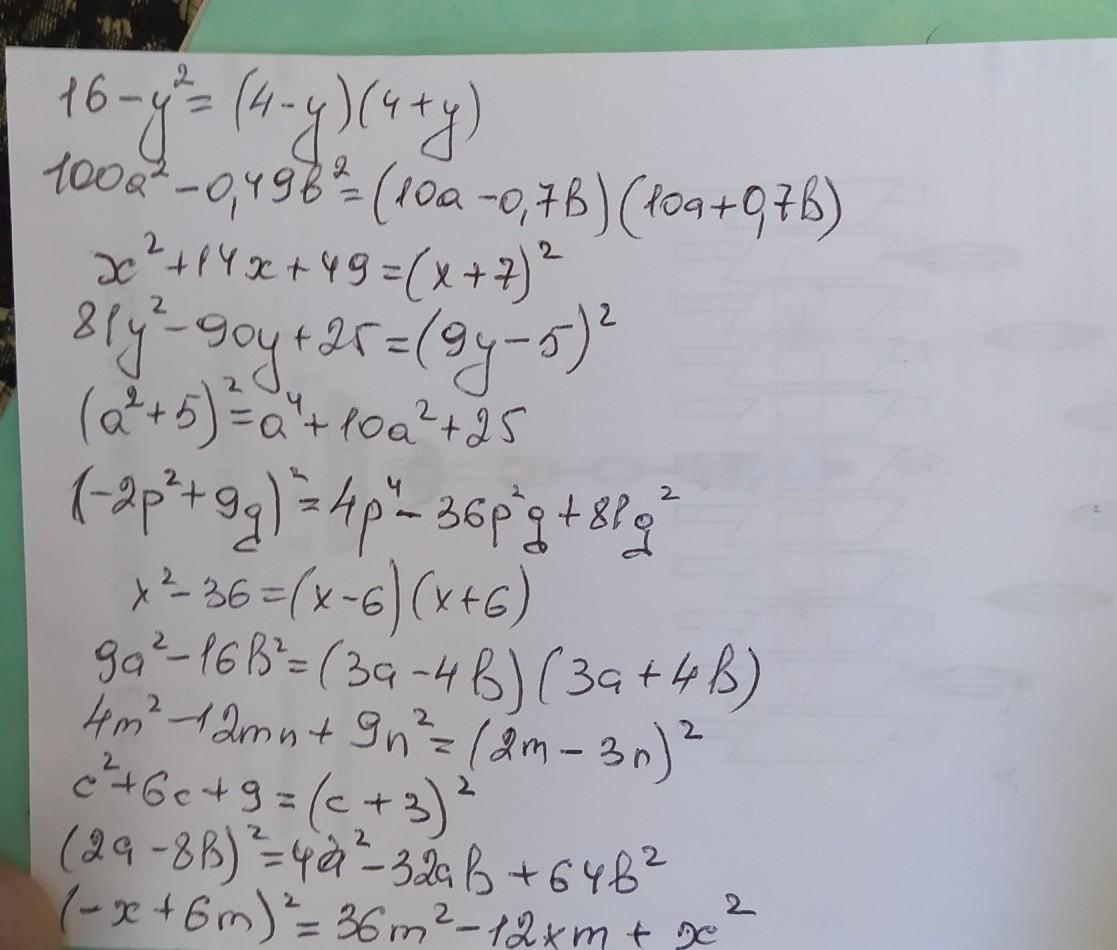 16-y²=(4-y)(4+y)
100a²-0,49b²=(10a-0,7b)(10a+0,7b)
x²+14x+49=(x+7)²
81y²-90y+25=(9y-5)²
(a²+5)²=a⁴+10a²+25
(-2p²+9g)²=4p⁴-36p²g+81g²
x²-36=(x-6)(x+6)
9a²-16b²=(3a-4b)(3a+4b)
4m²-12mn+9n²=(2m-3n)²
c²+6c+9=(c+3)²
(2a-8b)²=4a²-32ab+64b²
(-x+6m)²=36m²-12xm+x²